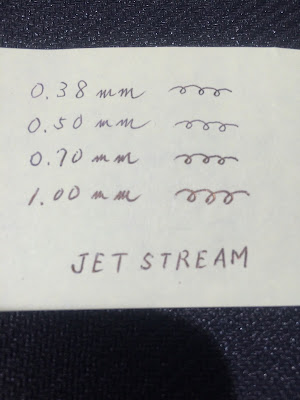 0.38 mm
0.50 mm
0.70 mm
1.00 mm
JET STREAM